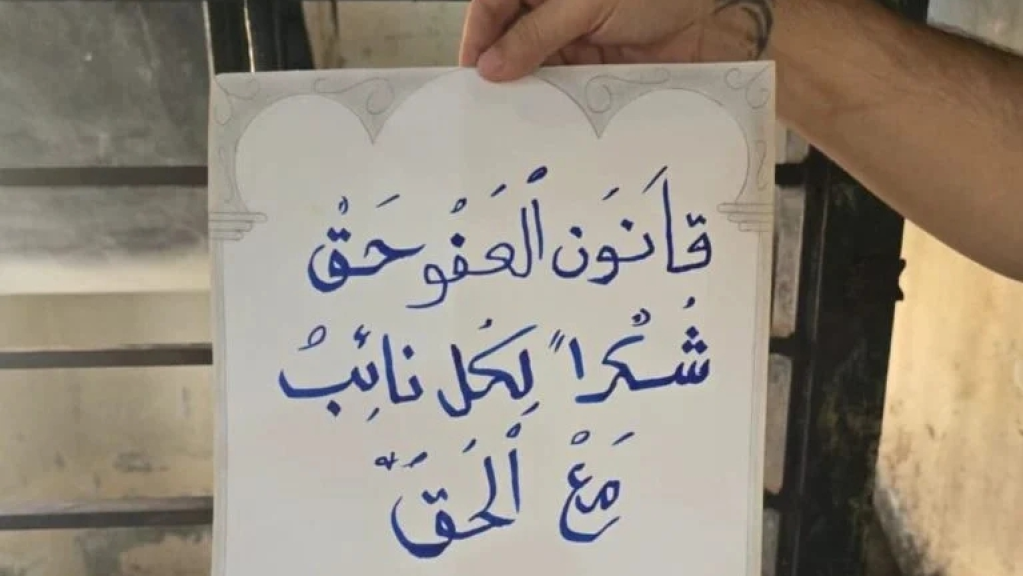 قَانَوَن ٱلْعَفْو حَقْ
شُكْراً لِكُل نائِبْ
مَعْ ٱلْحَقَّ